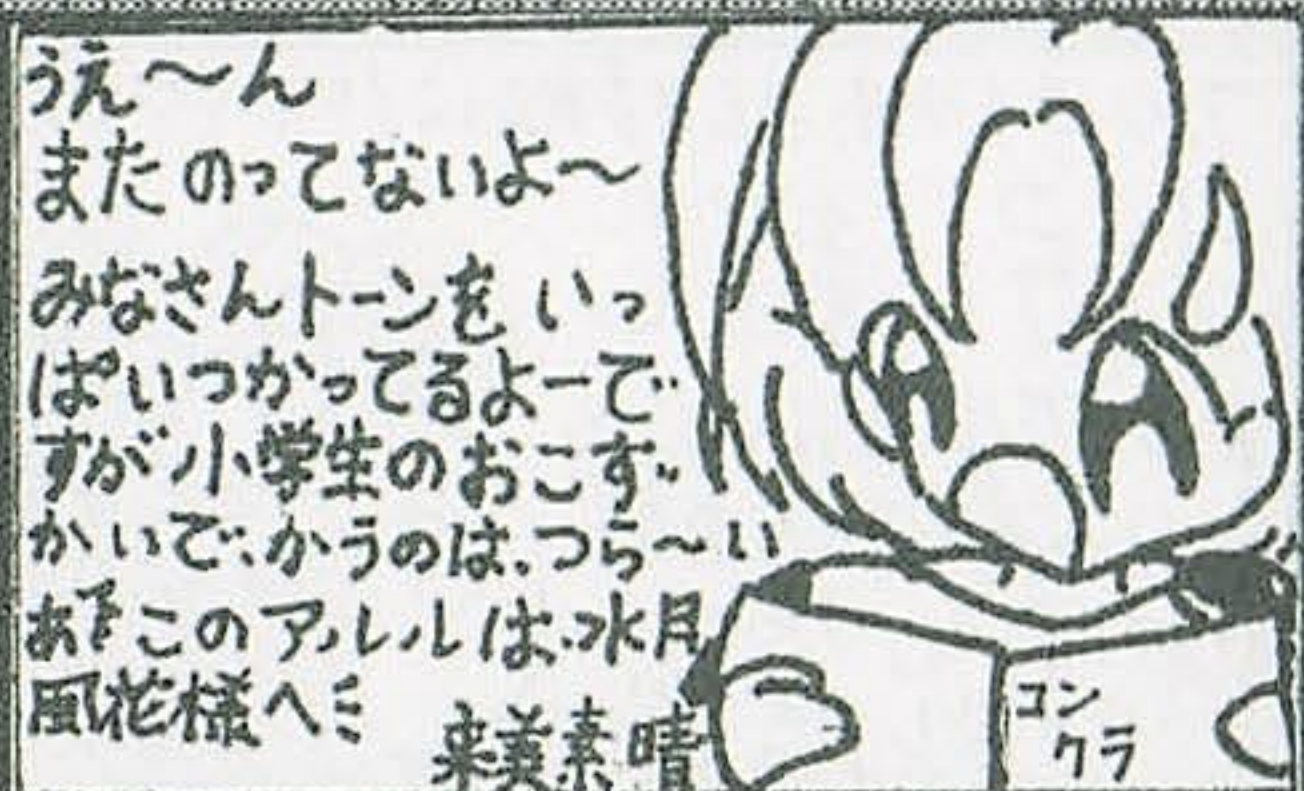 うえ〜ん
またのってないよ〜
みなさんトーンを いっ
ぱいつかってるよーで
すが小学生のおこず
かいで、かうのは、つら〜い
あとこのアルルは、水月
風花様へミ
来美素晴
コン
クラ